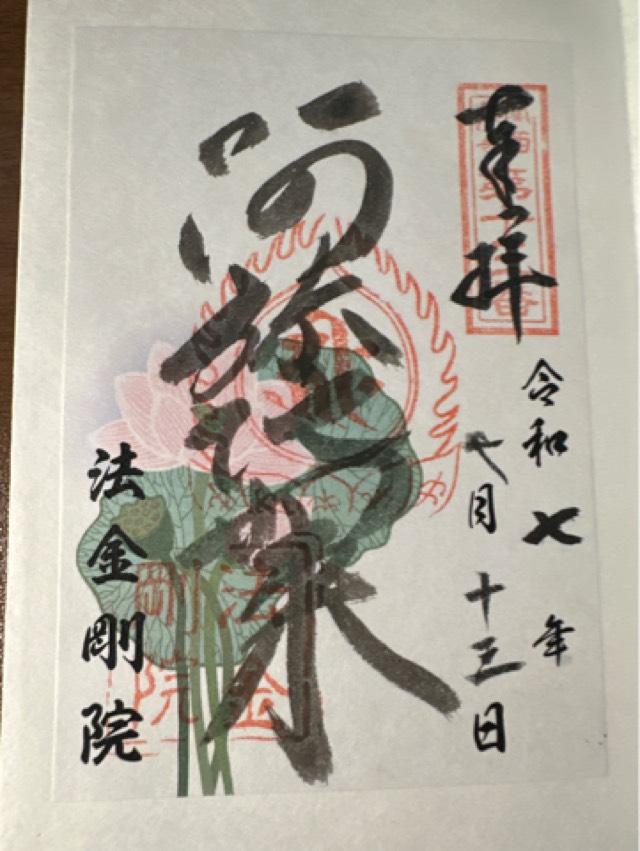 奉拝
令和七年
七月十三日
阿弥陀如来
法金剛院
法金
剛院